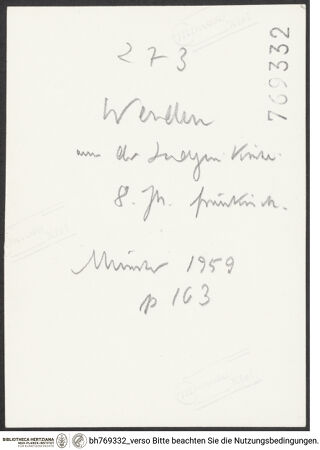 273
769332
Werden
8. Jh. fränkisch.
Münster 1959
p 163
BIBLIOTHECA HERTZIANA
MAX-PLANCK-INSTITUT
FÜR KUNSTGESCHICHTE
bh769332_verso Bitte beachten Sie die Nutzungsbedingungen.